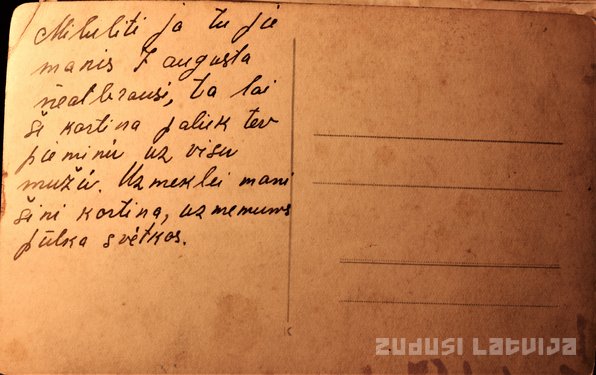 Mīluliti ja tu pie
manis 7 augusta
neatbrausi, ta lai
ši kartiņa paliek tev
piemiņu uz visu
mužu. Uzmeklei mani
šini kartiņa, uzņemums
pūlka svētkos.
ZUDUSI LATVIJA